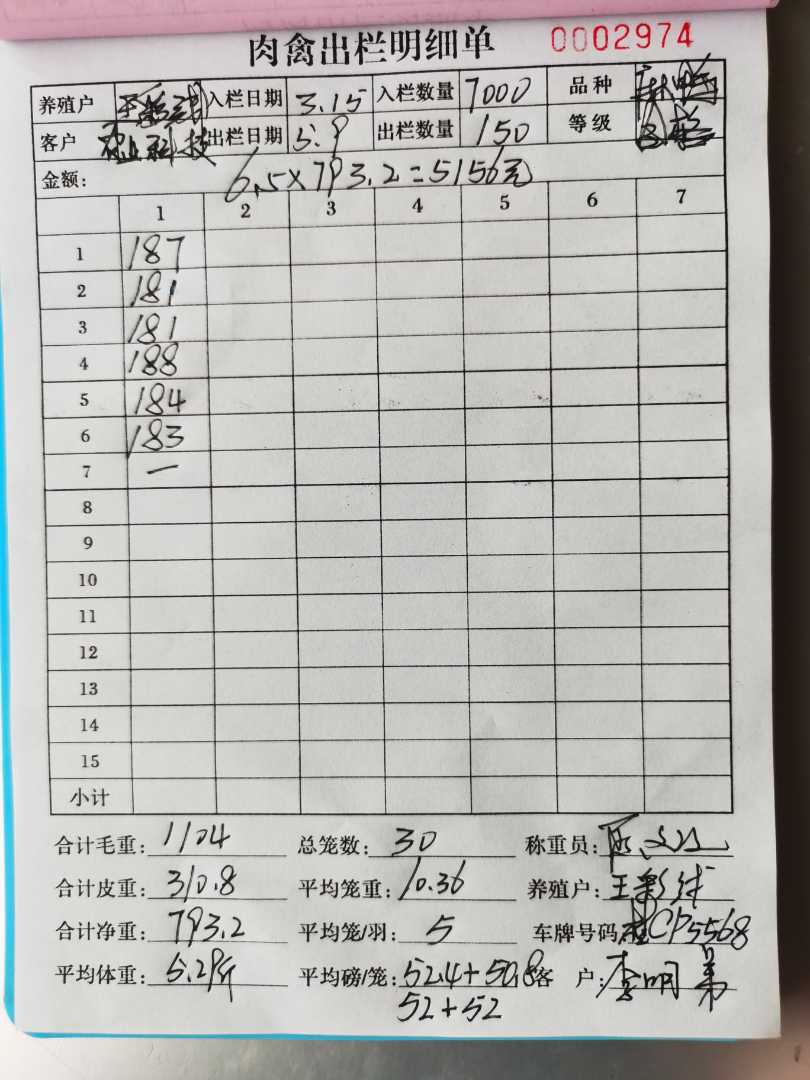 肉禽出栏明细单 0002974
养殖户 王彩球 入栏日期 3.15 入栏数量 7000 品种
客户 农业科技 出栏日期 5.9 出栏数量 150 等级
金额: 6.5×793.2=5156元
1 2 3 4 5 6 7
1 187
2 181
3 181
4 188
5 184
6 183
7 一
8
9
10
11
12
13
14
15
小计
合计毛重: 1104 总笼数: 30 称重员:
合计皮重: 310.8 平均笼重: 10.36 养殖户: 王彩球
合计净重: 793.2 平均笼/羽: 5 车牌号码: 桂CP5568
平均体重: 5.29斤 平均磅/笼: 52.4+50.8 客 户: 李明第
52+52